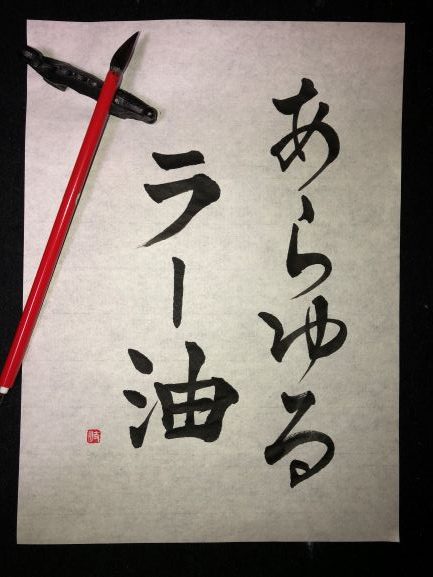 あらゆる
ラー油